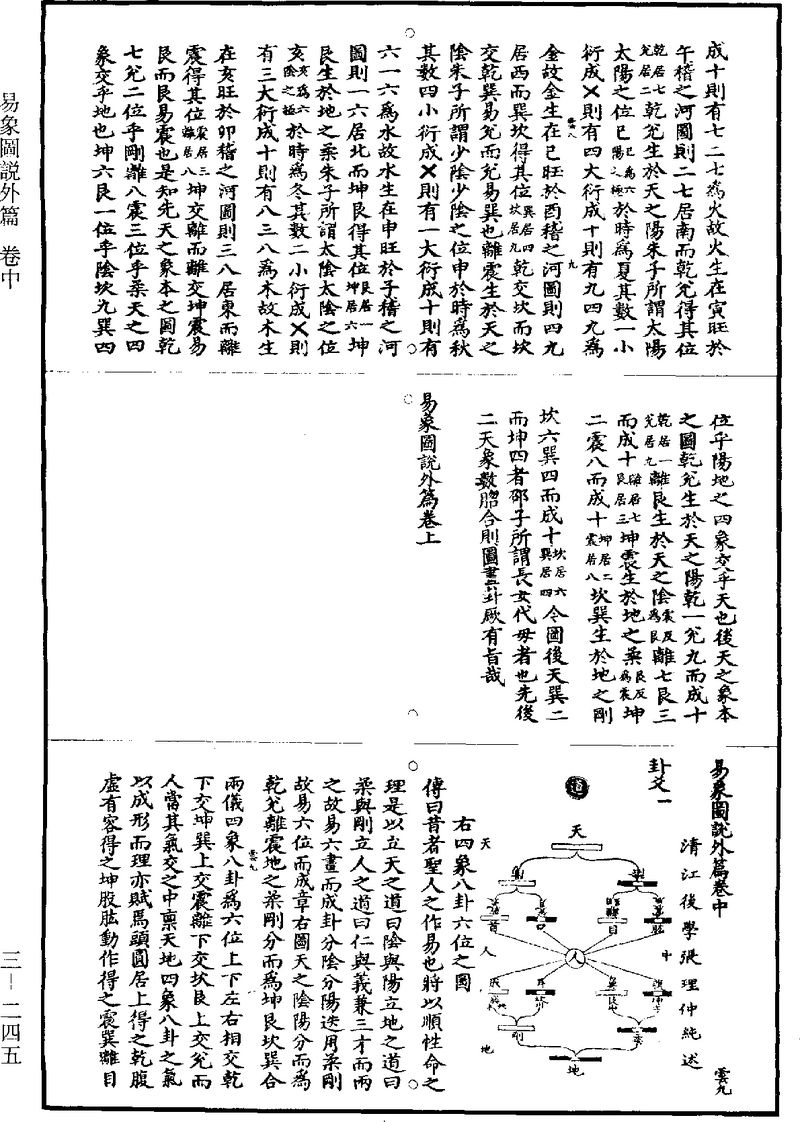 成十則有七二七爲火故火生在寅旺於
午稽之河圖則二七居南而乾兌得其位
乾居七兌居二乾兌生於天之陽朱子所謂太陽
太陽之位巳巳爲六陽之極於時爲夏其數一小
衍成㐅則有四大衍成十則有九四九爲
金故金生在巳旺於酉稽之河圖則四九
居西而巽坎得其位巽居四坎居九乾交坎而坎
交乾巽易兌而兌易巽也離震生於天之
陰朱子所謂少陰少陰之位申於時爲秋
其數四小衍成㐅則有一大衍成十則有
六一六爲水故水生在申旺於子稽之河
圖則一六居北而坤艮得其位艮居一坤居六坤
艮生於地之柔朱子所謂太陰太陰之位
亥亥爲六陰之極於時爲冬其數二小衍成㐅則
有三大衍成十則有八三八爲木故木生
在亥旺於卯稽之河圖則三八居東而離
震得其位震居三離居八坤交離而離交坤震易
艮而艮易震也是知先天之象本之圖乾
七兌二位乎剛離八震三位乎柔天之四
象交乎地也坤六艮一位乎陰坎九巽四
位乎陽地之四象交乎天也後天之象本
之圖乾兌生於天之陽乾一兌九而成十
乾居一兌居九離艮生於天之陰震反爲艮離七艮三
而成十離居七艮居三坤震生於地之柔艮反爲震坤
二震八而成十坤居二震居八坎巽生於地之剛
坎六巽四而成十坎居六巽居四今圖後天巽二
而坤四者邵子所謂長女代母者也先後
二天象數脗合則圖書卦畫厥有旨哉
易象圖說外篇卷上
易象圖說外篇卷中
清江後學張理仲純述
雲九
卦爻一
道
天
人
地
天
人
中
地
右四象八卦六位之圖
傳曰昔者聖人之作易也將以順性命之
理是以立天之道曰陰與陽立地之道曰
柔與剛立人之道曰仁與義兼三才而兩
之故易六畫而成卦分陰分陽迭用柔剛
故易六位而成章右圖天之陰陽分而爲
乾兌離震地之柔剛分而爲坤艮坎巽合
兩儀四象八卦爲六位上下左右相交乾
下交坤巽上交震離下交坎艮上交兌而
人當其氣交之中稟天地四象八卦之氣
以成形而理亦賦焉頭圓居上得之乾腹
虛有容得之坤股肱動作得之震巽離目
易象圖説外篇 卷中
三－二四五